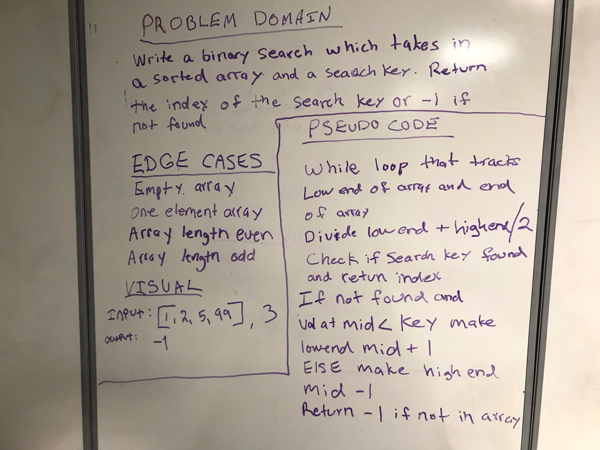 PROBLEM DOMAIN
Write a binary search which takes in
a sorted array and a search key. Return
the index of the search key or -1 if
not found
EDGE CASES
Empty array
One element array
Array length even
Array length odd
VISUAL
INPUT: [1, 2, 5, 99], 3
OUTPUT: -1
PSEUDO CODE
While loop that tracks
Low end of array and end
of array
Divide low end + highend/2
Check if search key found
and return index
If not found and
Val at mid < key make
lowend mid + 1
ELSE make high end
mid -1
Return -1 if not in array